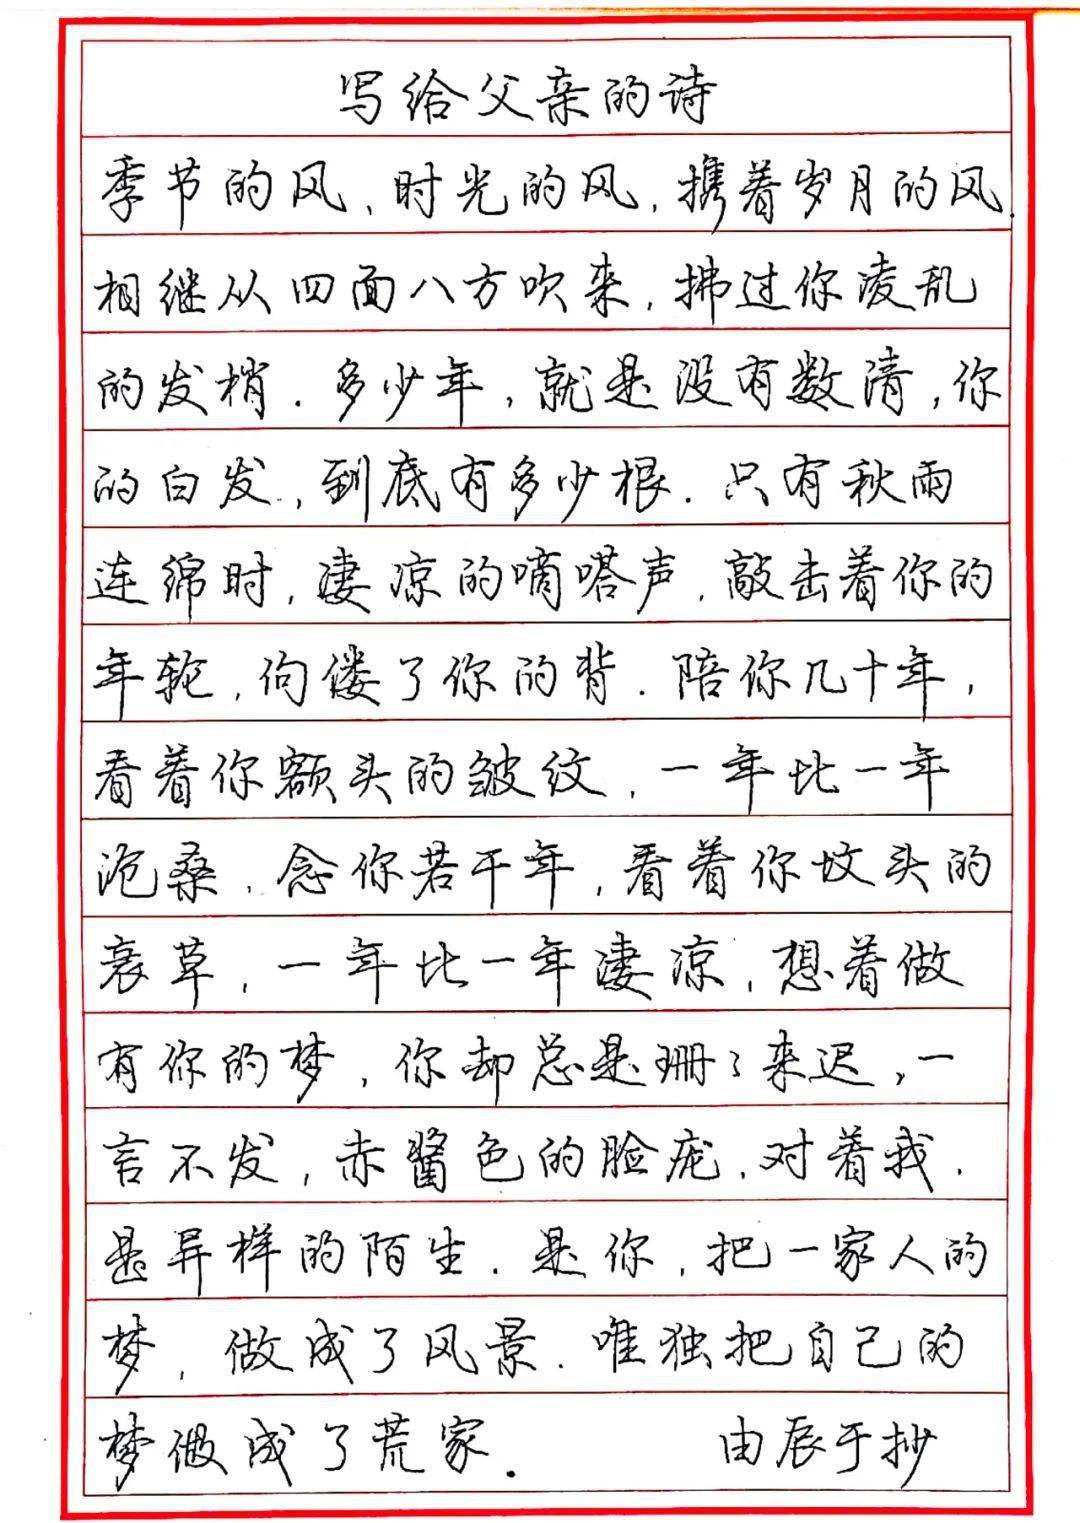 写给父亲的诗
季节的风、时光的风,携着岁月的风.
相继从四面八方吹来,拂过你凌乱
的发梢.多少年,就是没有数清,你
的白发,到底有多少根.只有秋雨
连绵时,凄凉的嘀嗒声,敲击着你的
年轮,佝偻了你的背.陪你几十年,
看着你额头的皱纹,一年比一年
沧桑,念你若干年,看着你坟头的
衰草,一年比一年凄凉,想着做
有你的梦,你却总是珊々来迟,一
言不发,赤酱色的脸庞,对着我.
是异样的陌生.是你,把一家人的
梦,做成了风景.唯独把自己的
梦做成了荒冢.
由辰于抄